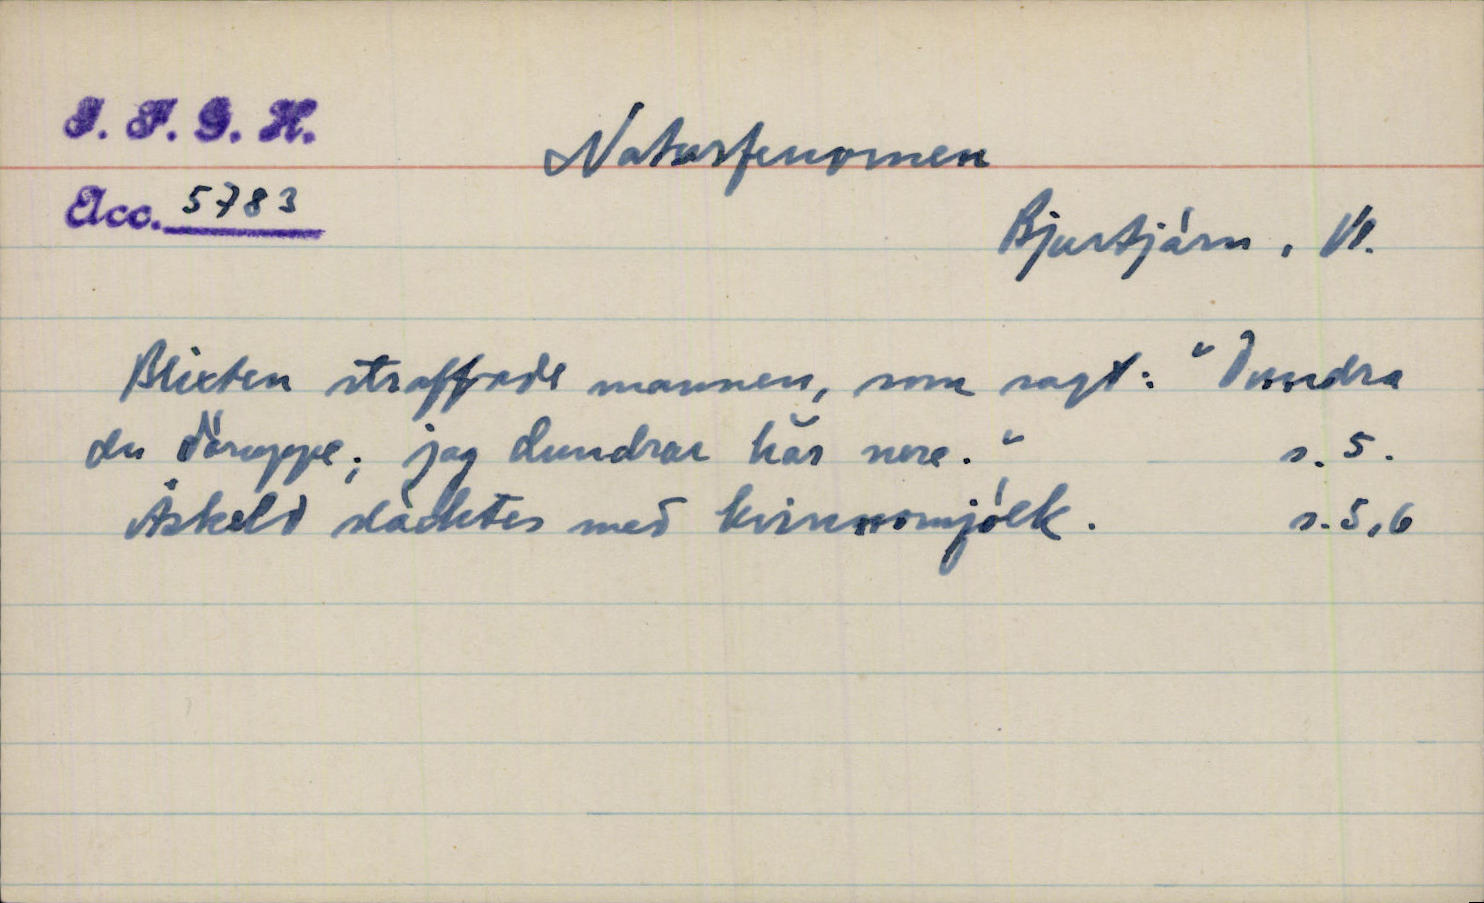 I. F. G. H.
Naturfenomen
Acc. 5783
Bjurtjärn, Vl.
Blixten straffade mannen, som sagt: "Dundra
du däruppe; jag dundrar här nere." s. 5.
Åskeld släcktes med kvinnomjölk. s. 5, 6